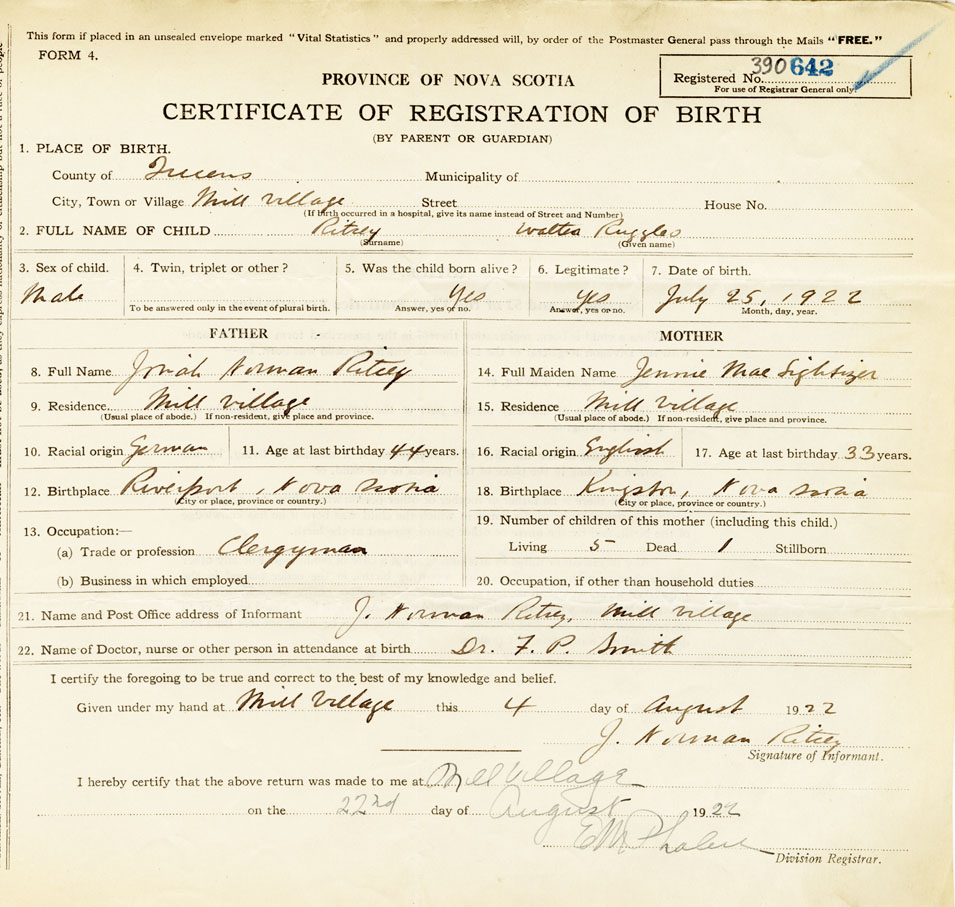 This form if placed in an unsealed envelope marked "Vital Statistics" and properly addressed will, by order of the Postmaster General pass through the Mails "FREE."
FORM 4.
Registered No. 390642
For use of Registrar General only.
PROVINCE OF NOVA SCOTIA
CERTIFICATE OF REGISTRATION OF BIRTH
(BY PARENT OR GUARDIAN)
1. PLACE OF BIRTH.
County of Queens Municipality of
City, Town or Village Mill Village Street House No.
(If birth occurred in a hospital, give its name instead of Street and Number)
2. FULL NAME OF CHILD Ritcey Walter Ruggles
(Surname) (Given name)
3. Sex of child. 4. Twin, triplet or other? 5. Was the child born alive? 6. Legitimate? 7. Date of birth.
Male Yes Yes July 25, 1922
To be answered only in the event of plural birth. Answer, yes or no. Answer, yes or no. Month, day, year.
FATHER MOTHER
8. Full Name Josiah Norman Ritcey 14. Full Maiden Name Jennie Mae
9. Residence Mill Village 15. Residence Mill Village
(Usual place of abode.) If non-resident, give place and province. (Usual place of abode.) If non-resident, give place and province.
10. Racial origin German 11. Age at last birthday 44 years. 16. Racial origin English 17. Age at last birthday 33 years.
12. Birthplace Riverport, Nova Scotia 18. Birthplace Kingston, Nova Scotia
(City or place, province or country.) (City or place, province or country.)
13. Occupation:— 19. Number of children of this mother (including this child.)
(a) Trade or profession Clergyman Living 5 Dead 1 Stillborn
(b) Business in which employed 20. Occupation, if other than household duties
21. Name and Post Office address of Informant J. Norman Ritcey, Mill Village
22. Name of Doctor, nurse or other person in attendance at birth Dr. F. P. Smith
I certify the foregoing to be true and correct to the best of my knowledge and belief.
Given under my hand at Mill Village this 4 day of August 1922
J. Norman Ritcey
Signature of Informant.
I hereby certify that the above return was made to me at Mill Village
on the 22nd day of August 1922
E M Phalen
Division Registrar.